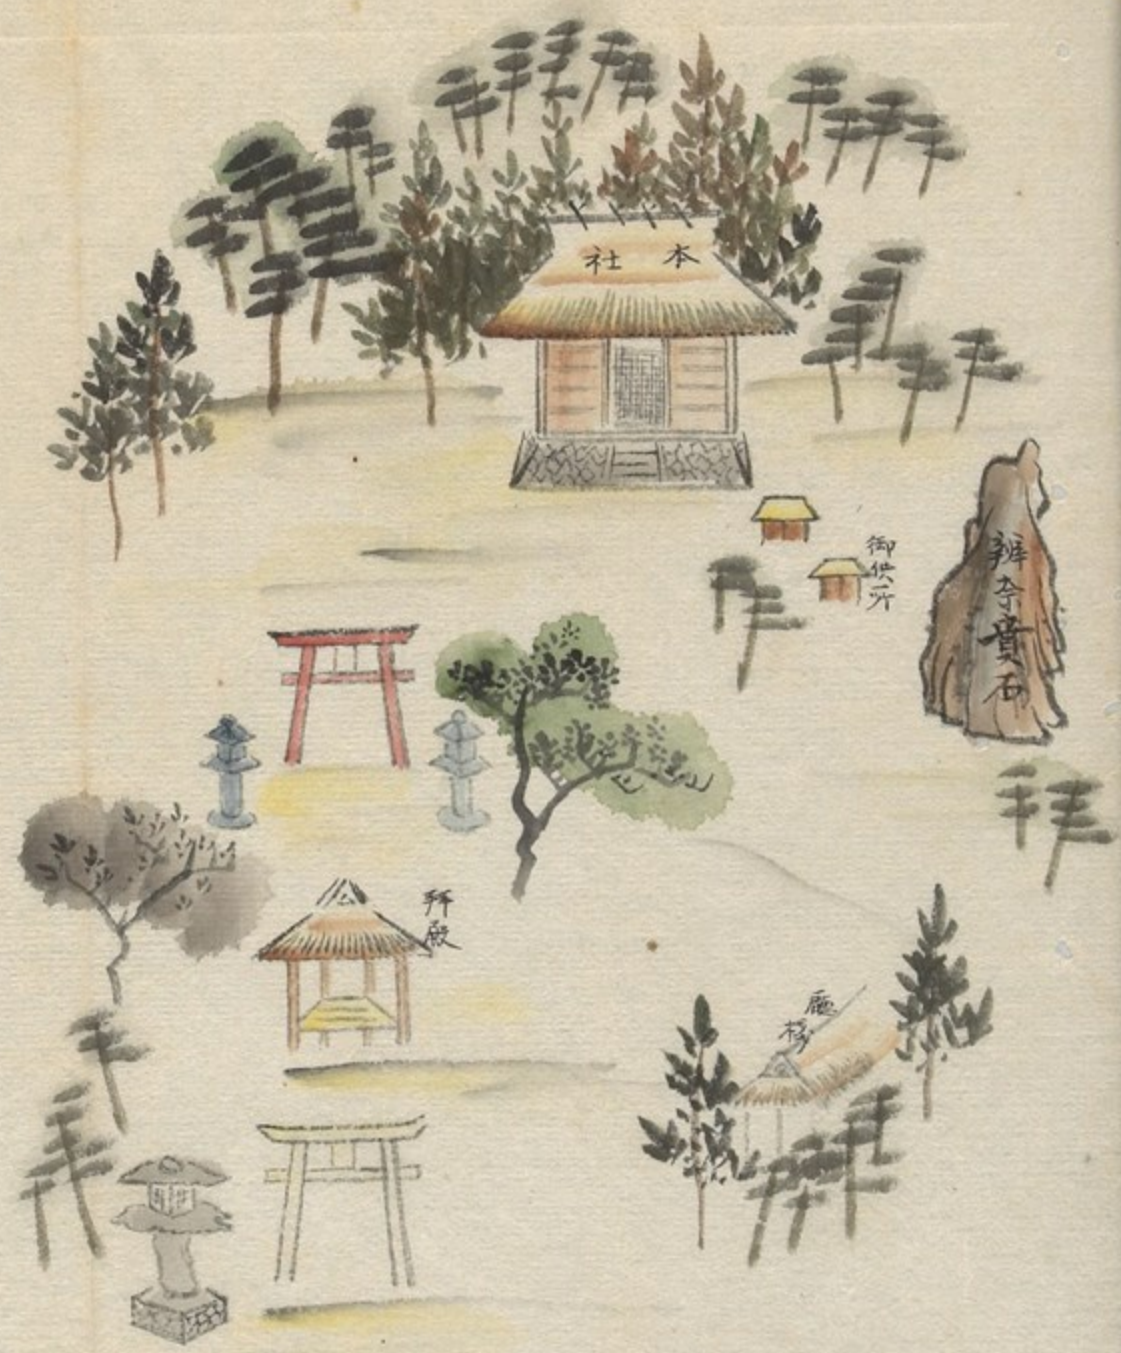 本社
御供所
辨奈貴石
拝殿
廳